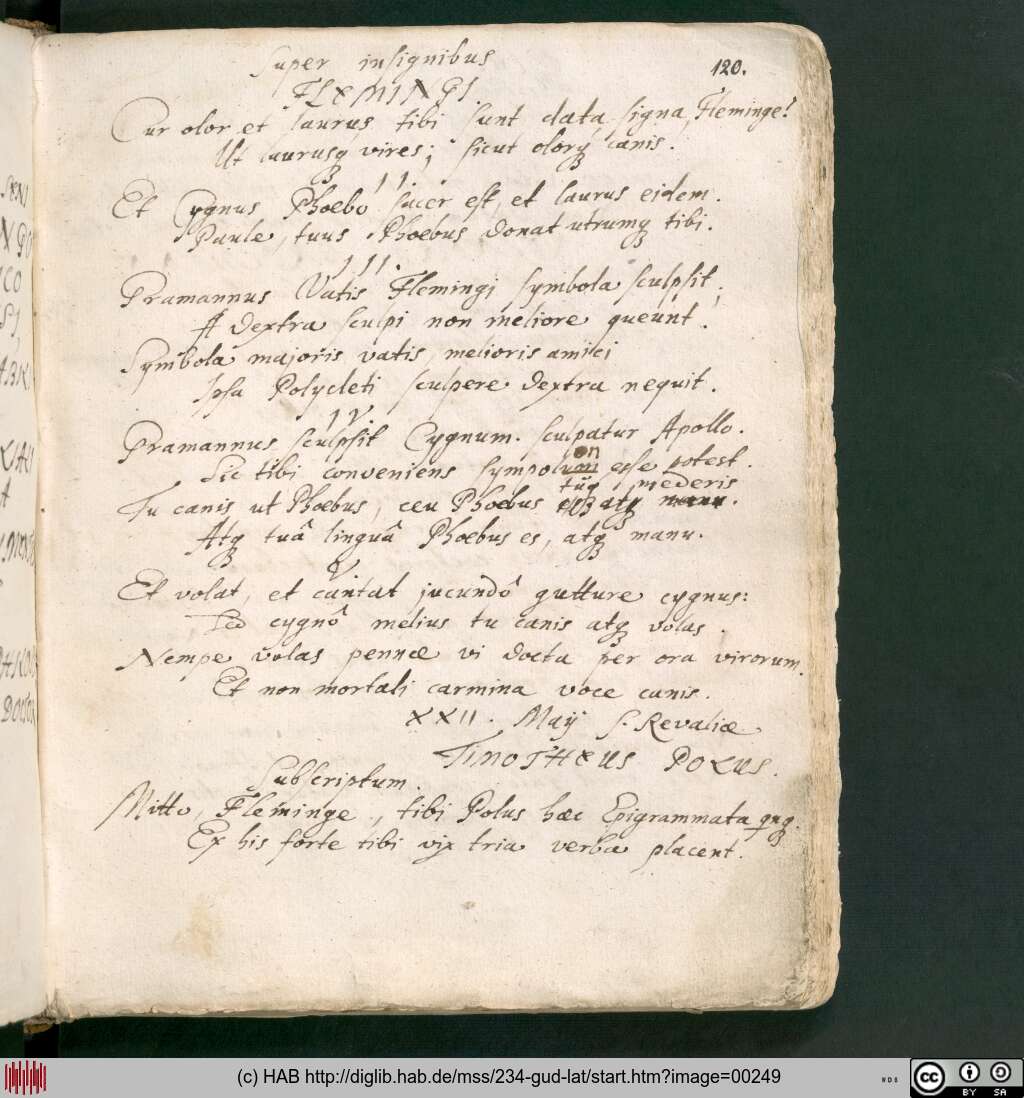 Super insignibus
FLEMINGI.
120.
Cur olor et laurus tibi sunt data signa, Fleminge?
Ut laurusq vires; sicut olorq canis.
II
Et Cygnus Phoebo sacer est, et laurus eidem.
Paule, tuus Phoebus donat utrumq tibi.
III.
Pramannus Vatis Flemingi symbola sculpsit,
A dextra sculpi non meliore queunt.
Symbola majoris vatis, melioris amici
Ipsa Polycleti sculpere dextra nequit.
IV.
Pramannus sculpsit Cygnum. sculpatur Apollo.
on
Sic tibi conveniens sympolum esse potest.
mederis
Tu canis ut Phoebus, ceu Phoebus atq manu.
Atq tuâ linguâ Phoebus es, atq manu.
V
Et volat, et cantat jucundô gutture cygnus:
Sed cygnô melius tu canis atq volas.
Nempe volas pennae vi docta per ora virorum.
Et non mortali carmina voce canis.
XXII. Maij Revaliae
TIMOTHEUS POLUS.
Subscriptum.
Mitto, Fleminge, tibi Polus haec Epigrammata
Ex his forte tibi vix tria verba placent.
(c) HAB http://diglib.hab.de/mss/234-gud-lat/start.htm?image=00249
cc
BY SA